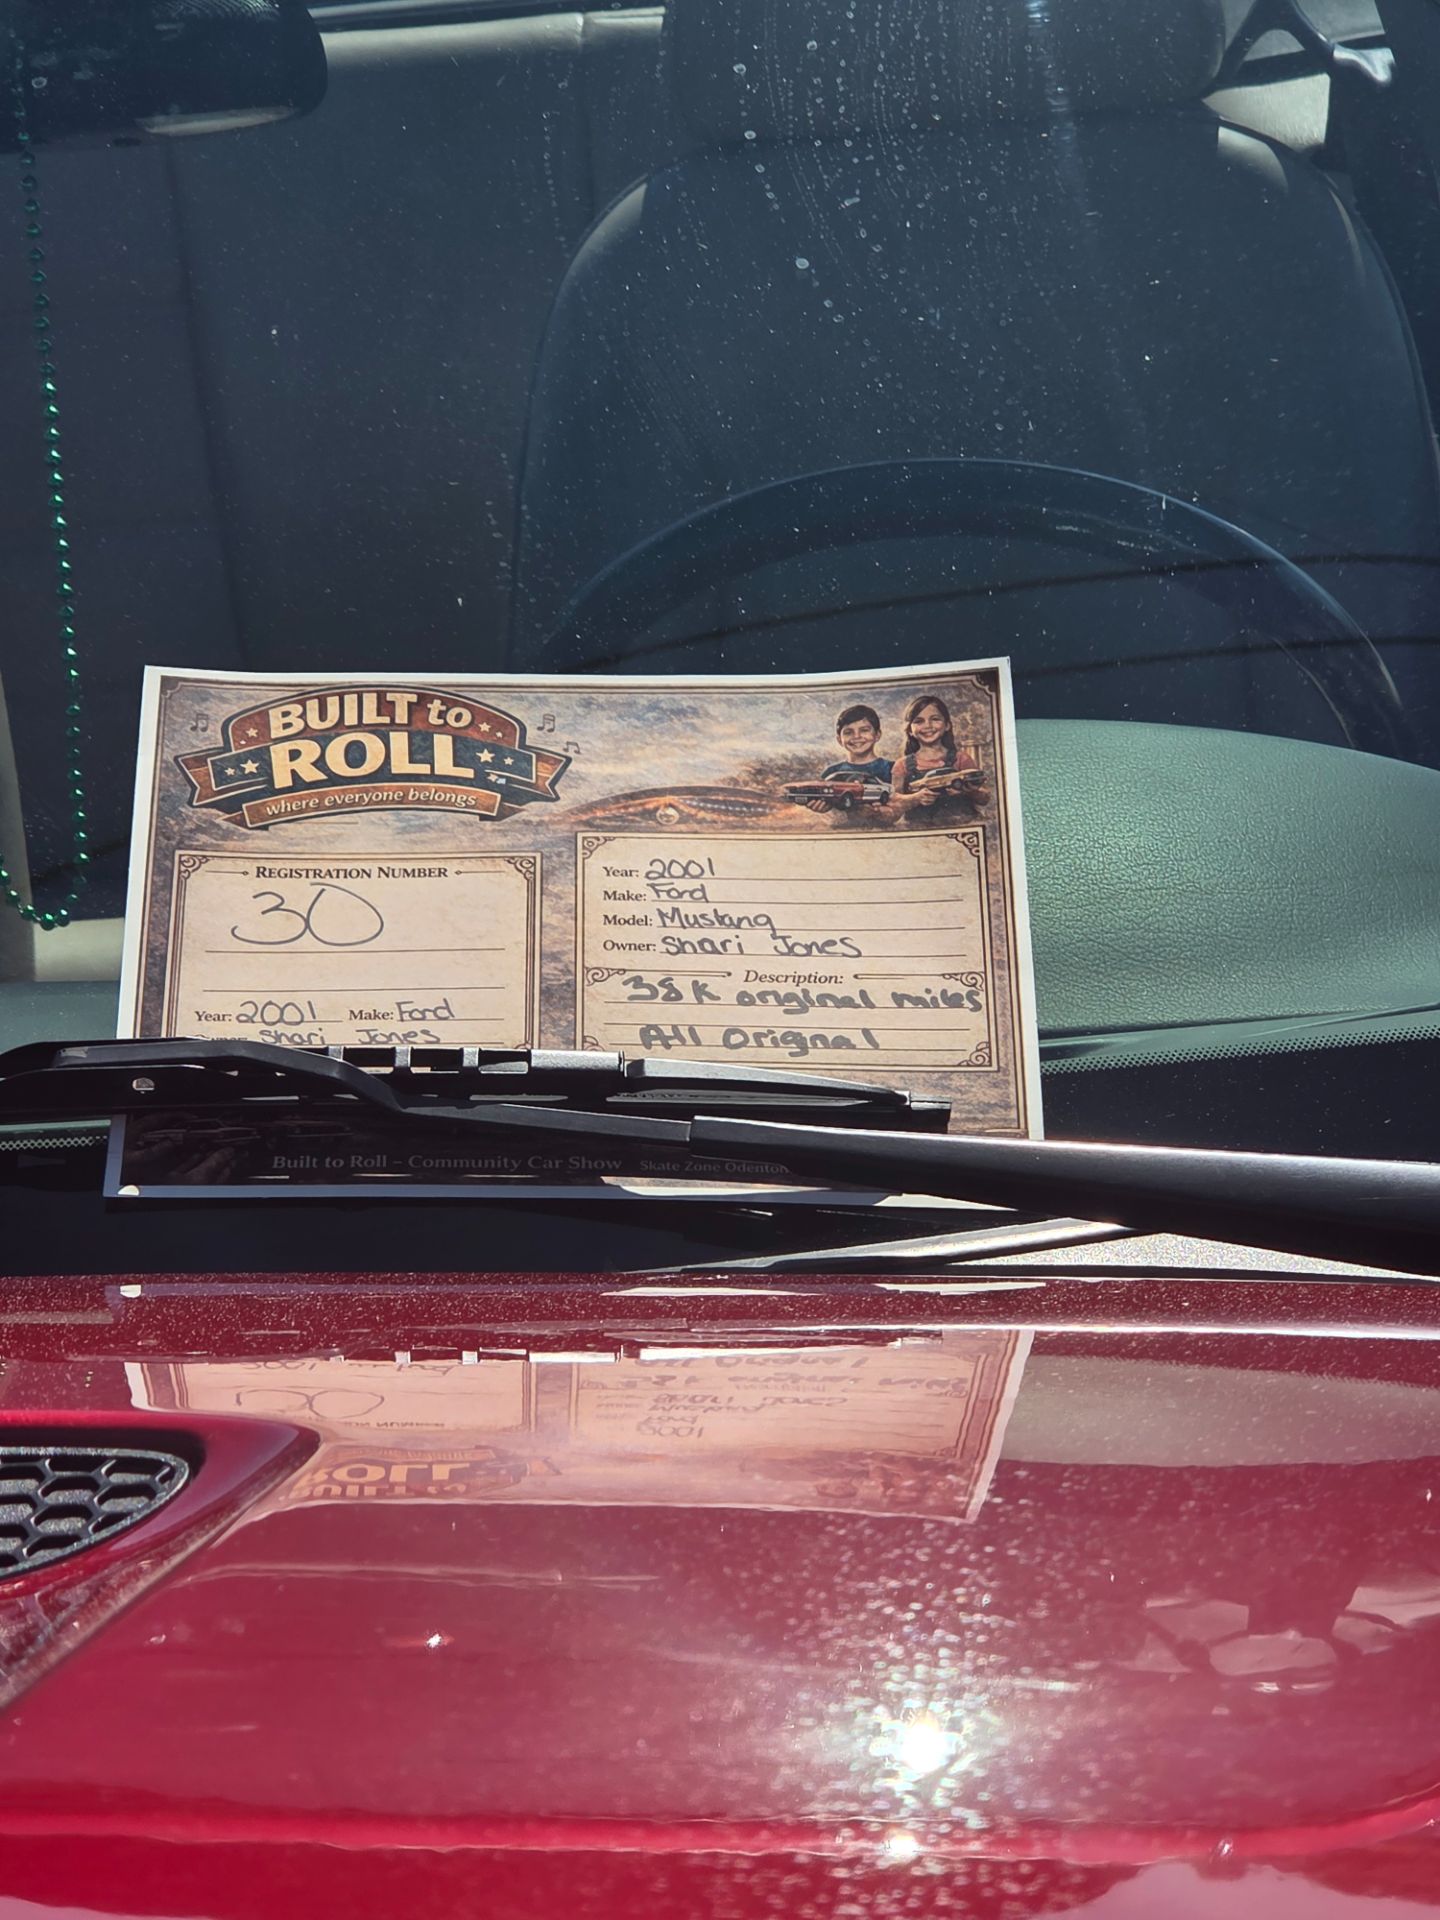 BUILT to
ROLL
where everyone belongs
REGISTRATION NUMBER
30
Year: 2001 Make: Ford
Shari Jones
Year: 2001
Make: Ford
Model: Mustang
Owner: Shari Jones
Description:
38K original miles
All Original
Built to Roll – Community Car Show Skate Zone Odenton